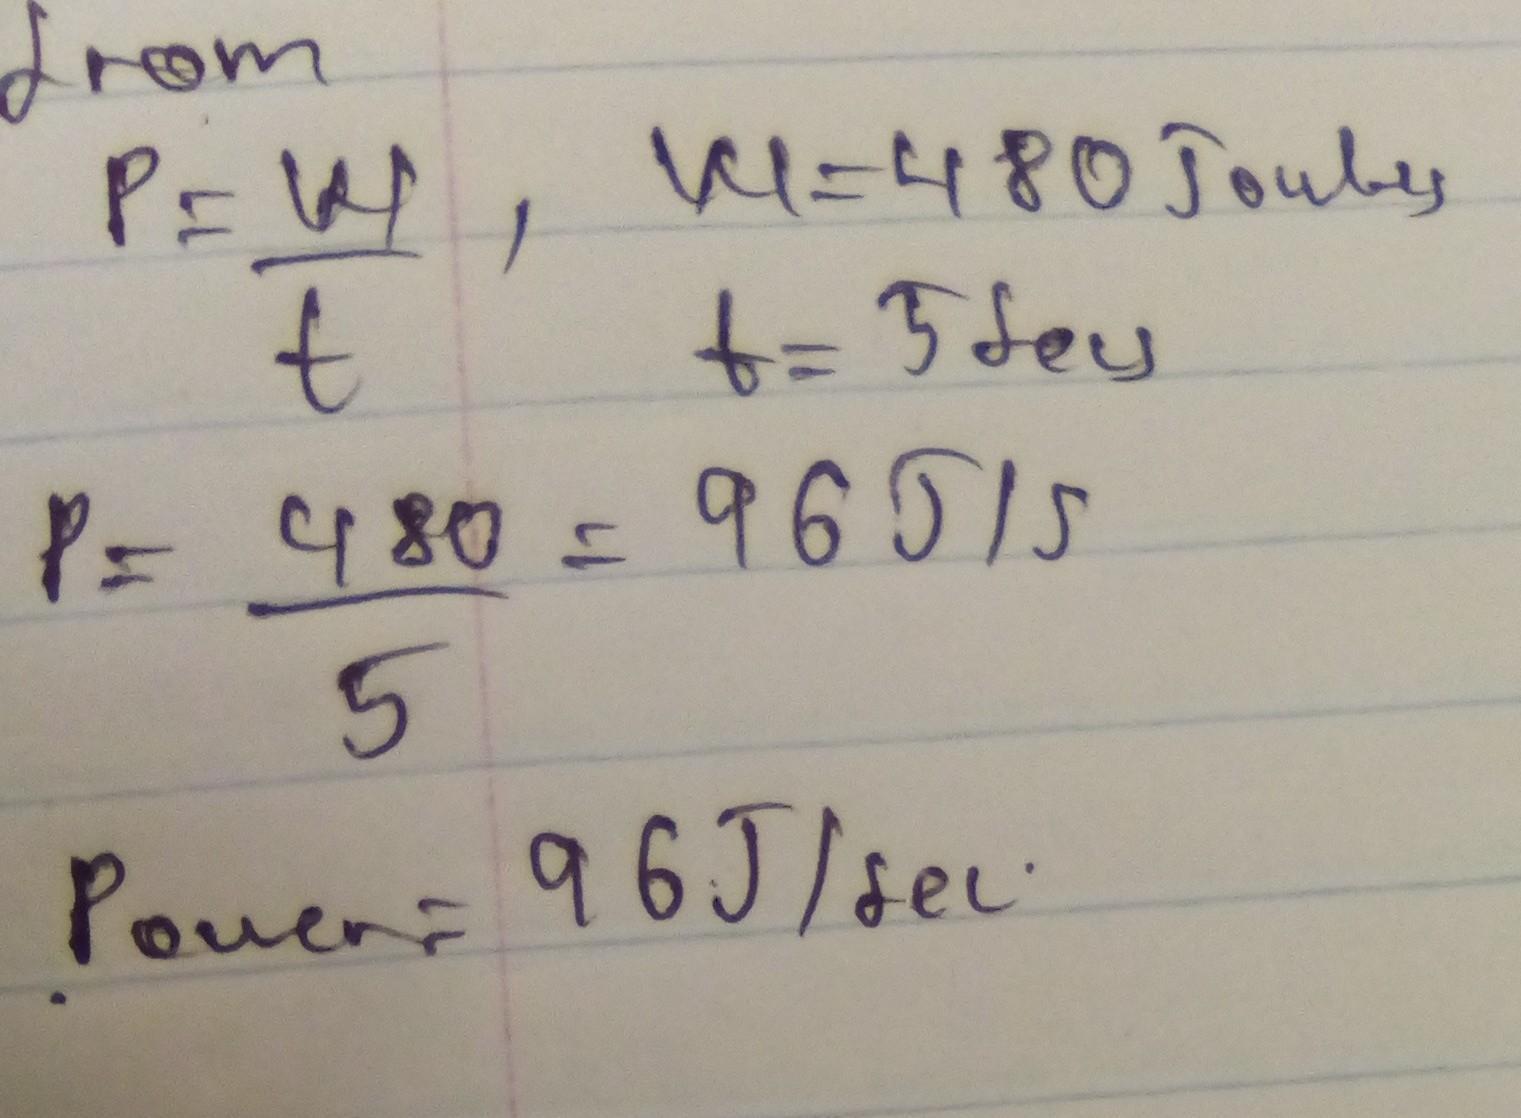 from
P = W/t , W = 480 Joules
t = 5 secs
P = 480/5 = 96 J/s
Power = 96 J/sec.